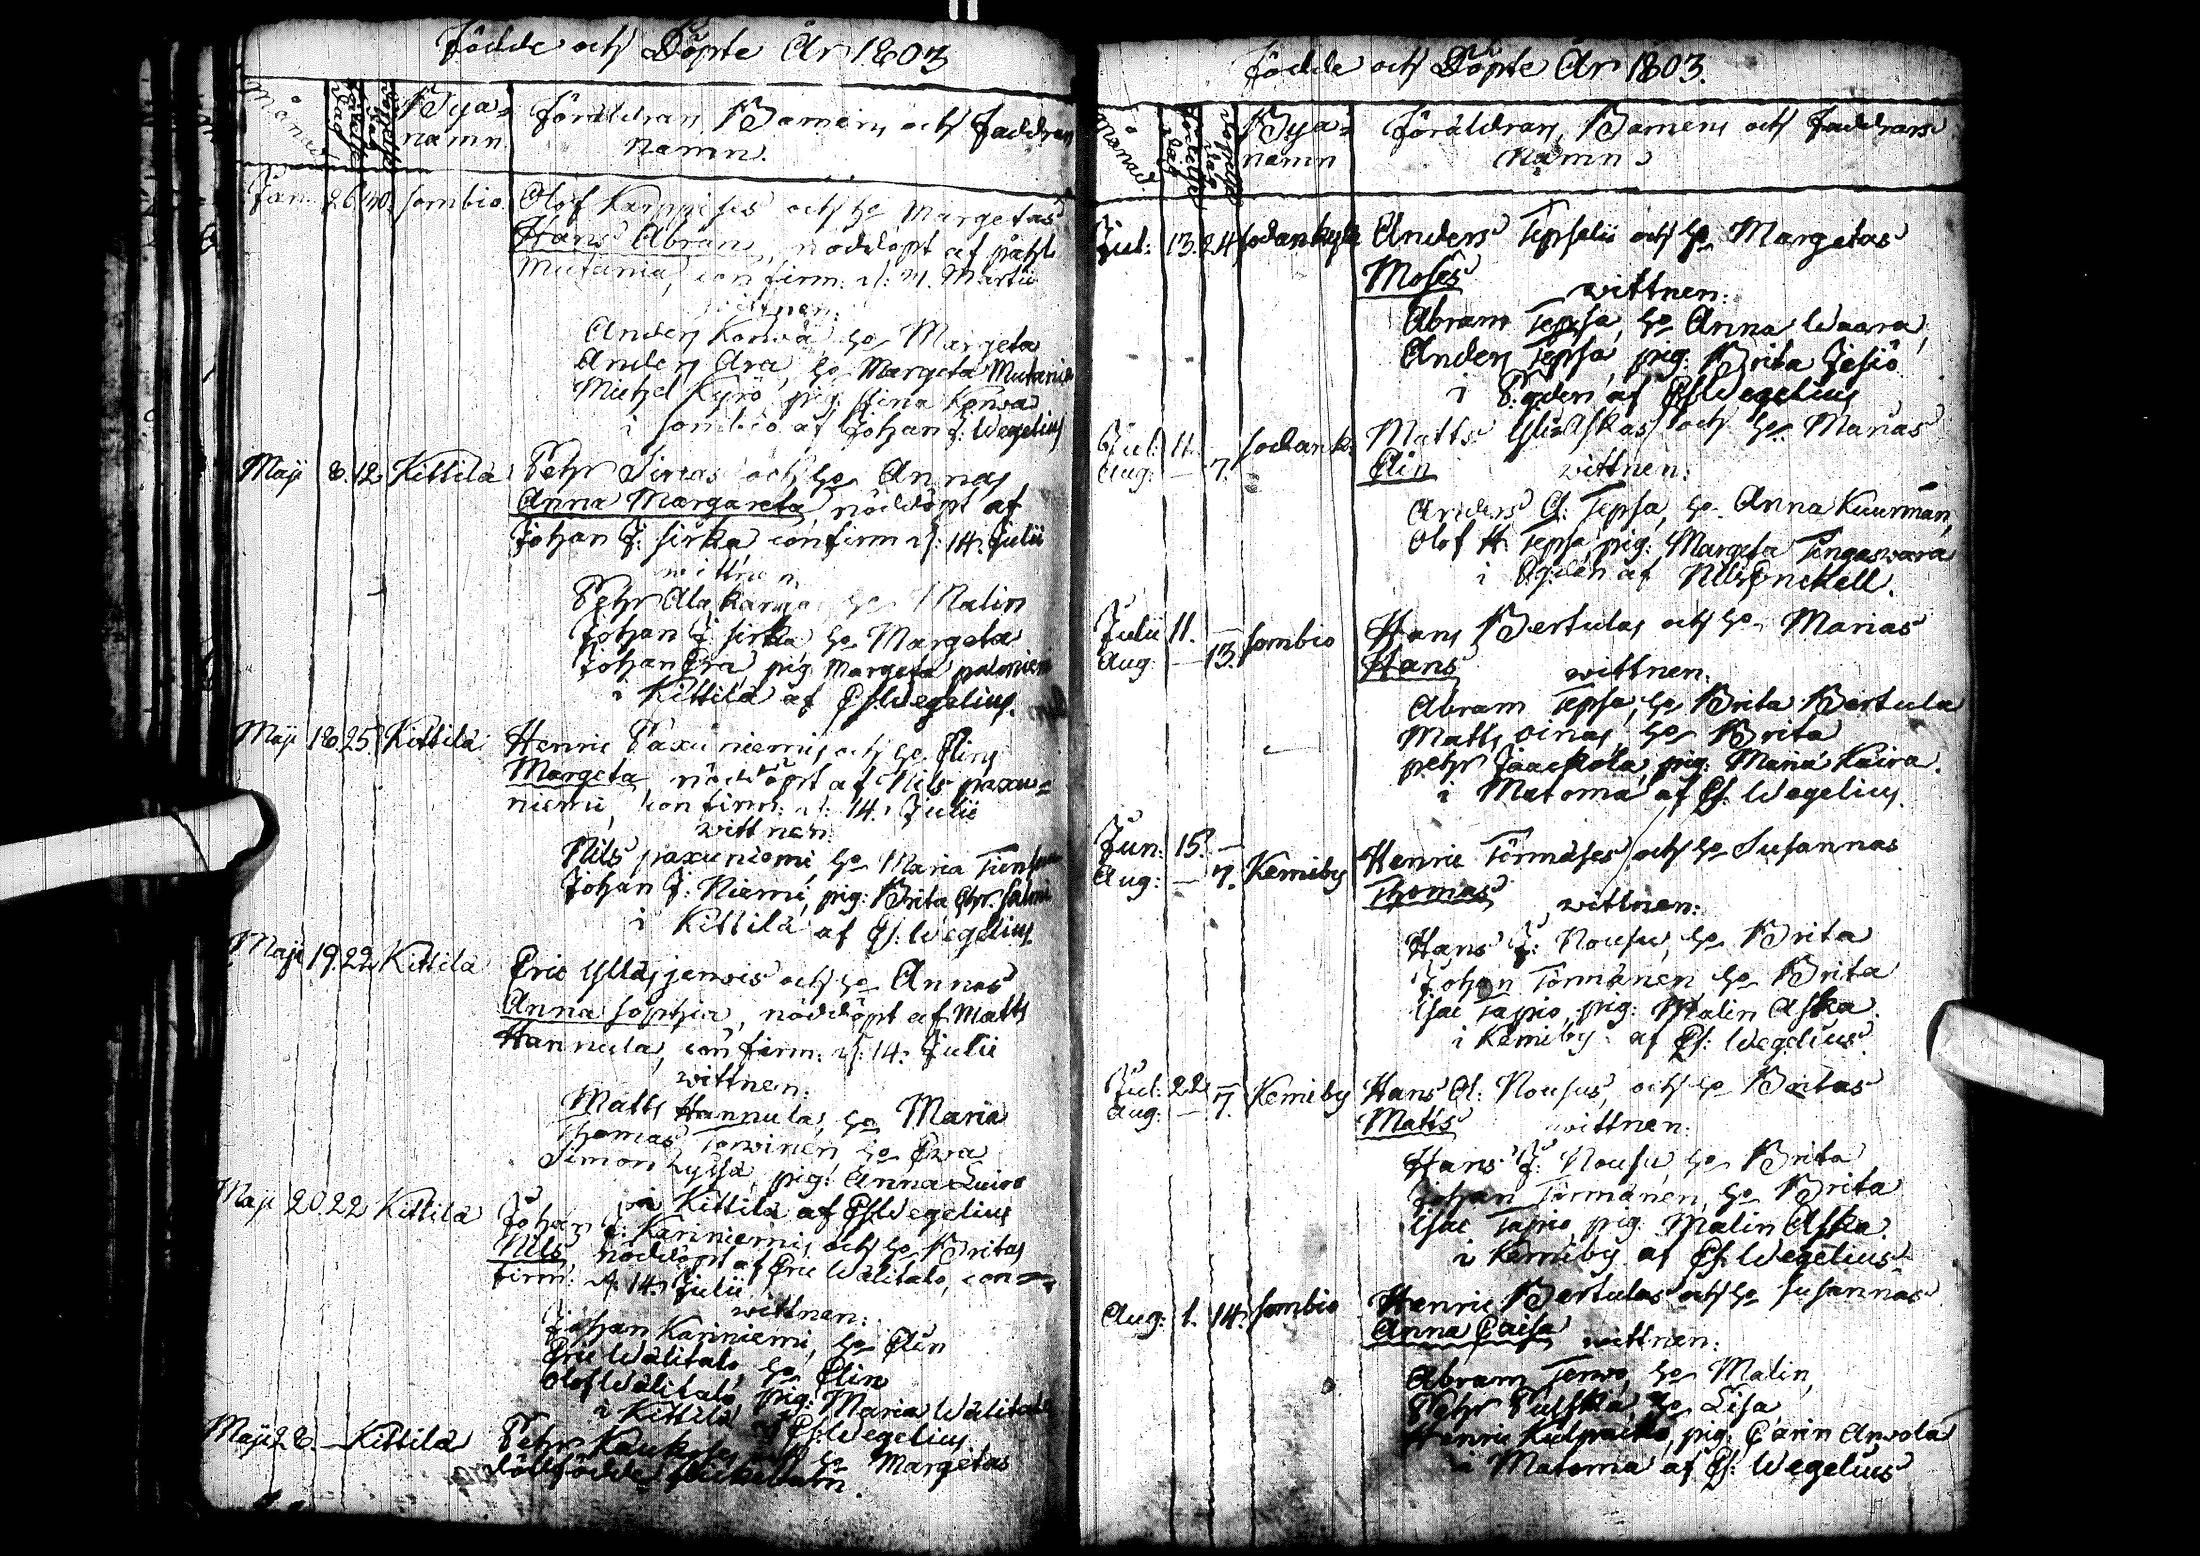 Födde och Döpte År 1803
Månad Födelse Dag Döpelse Dag Bya= namn Föräldran, Barnens och Faddran
namn.
Jan. 26. 30. Sombio Olof Karppises och h:o Margetas
Hans Abram, nöddöpt af påhl
Mutania, confirm. d: 21. Martii
wittnen:
Anders Korwa, h:o Margeta
Anders Ara, h:o Margeta Mutania
Michel Kyrö, pig: Stina Korwa
i Sombio af Johan J: Wegelius
Maji 8. 12. Kittilä Pehr Sirkas och h:o Annas
Anna Margareta, nöddöpt af
Johan J: Sirka, confirm d: 14. Julii
wittnen
Pehr Alakarja h:o Malin
Johan J: Sirka, h:o Margeta
Johan Era, pig Margeta palonien
i Kittilä af Es Wegelius.
Maji 18. 25. Kittilä Henric Paxuniemis och h:o Elins
Margeta nöddöpt af Nils paxu=
niemi, confirm: d: 14. Julii
wittnen:
Nils paxuniemi, h:o Maria
Johan J: Niemi, pig: Brita Salmi
i Kittilä af Es: Wegelius
Maji 19. 22. Kittilä Eric Ylläsjerwis och h:o Annas
Anna Sophia, nöddöpt af Matts
Hannula, confirm: d: 14. Julii
wittnen:
Matts Hannula, h:o Maria
Thomas Torwinen h:o Ewa
Simon, pig: Anna Luiro
i Kittilä af Es Wegelius
Maji 20. 22. Kittilä Johan J: Kariniemis och h:o Britas
Nils, nöddöpt af Eric Wälitalo, con=
firm: d: 14. Julii
wittnen:
Johan Kariniemi, h:o Elin
Eric Wälitalo, h:o Elin
Olof Wälitalo, pig: Maria Wälitalo
i Kittilä af Es: Wegelius
Maji 28. — Kittilä Pehr Kaukoses och h:o Margetas
dödfödde flickebarn.
Födde och Döpte År 1803.
Månad. Födelse dag Döpelse dag Bya= namn Föräldran, Barnens och Faddrans
Namn
Jul: 13. 24 Sodankylä Anders Tepselii och h:o Margetas
Moses wittnen:
Abram Tepsa, h:o Anna Waara,
Anders Tepsa, pig: Brita Jesiö
i S:gden af Es Wegelius
Jul: 11. — Sodank: Matts Yliaskas och h:o Marias
Aug: — 7. Elin wittnen:
Anders A: Tepsa, h:o Anna Kuurman,
Olof H: Tepsa, pig: Margeta Tingaswara
i S:gden af Nils Enckell.
Julii 11. — Sombio Hans Bertulas och h:o Marias
Aug: — 13. Hans wittnen.
Abram Tepsa, h:o Brita Bertula
Matts Oinas, h:o Brita
pehr Jaackola, pig: Maria Kaira.
i Matoma af Es. Wegelius.
Jun: 15. — Kemiby Henric Törmäses och h:o Susannas
Aug: — 7. Thomas wittnen:
Hans J: Nousu, h:o Brita
Johan Törmänen h:o Brita
Isac Tapio, pig: Malin Aska.
i Kemiby af Es: Wegelius.
Jul: 22 — Kemiby Hans O: Nousus, och h:o Britas
Aug: — 7. Matts wittnen:
Hans J: Nousu h:o Brita
Johan Törmänen, h:o Brita
Isac Tapio, pig: Malin Aska.
i Kemiby af Es: Wegelius
Aug: 1. 14. Sombio Henric Bertulas och h:o Susannas
Anna Caisa wittnen:
Abram, h:o Malin,
Pehr Pulska, h:o Lisa,
Henric, pig: Carin Arwola
i Matoma af Es: Wegelius